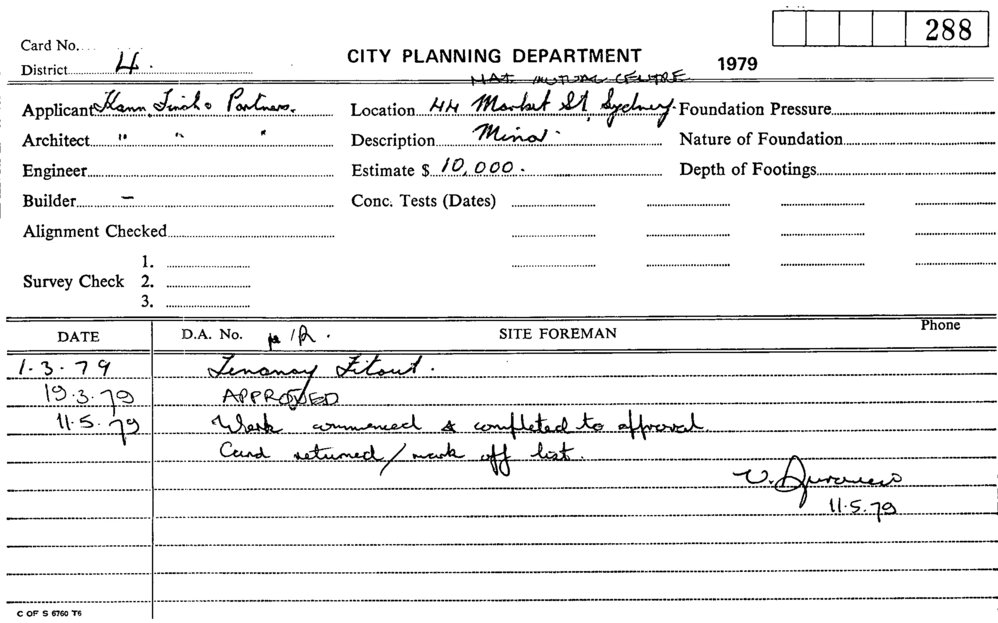 288
Card No.
District 4.
CITY PLANNING DEPARTMENT
1979
NAT. MUTUAL CENTRE
Applicant Hann, Finch & Partners.
Location 44 Market St, Sydney.
Foundation Pressure
Architect " " "
Description Minor.
Nature of Foundation
Engineer
Estimate $ 10,000.
Depth of Footings
Builder –
Conc. Tests (Dates)
Alignment Checked
1.
Survey Check 2.
3.
DATE D.A. No. /R. SITE FOREMAN Phone
1.3.79 Tenancy Fitout.
19.3.79 APPROVED
11.5.79 Work commenced & completed to approval.
Card returned / mark off list.
11.5.79
C OF S 6760 T6